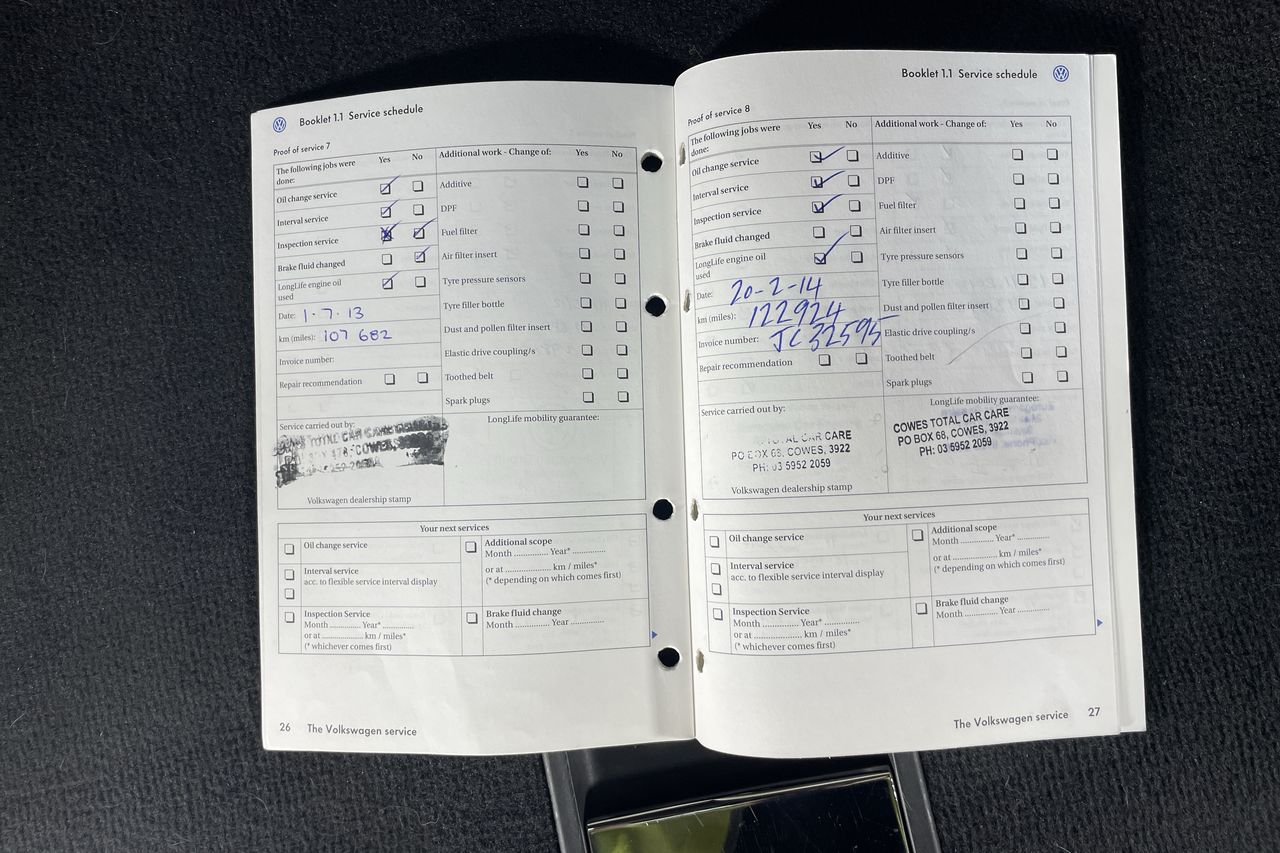 Booklet 1.1 Service schedule
Proof of service 7
The following jobs were done:
Yes No
Additional work - Change of:
Yes No
Oil change service
Interval service
Inspection service
Brake fluid changed
LongLife engine oil used
Date: 1.7.13
km (miles): 107 682
Invoice number:
Repair recommendation
Additive
DPF
Fuel filter
Air filter insert
Tyre pressure sensors
Tyre filler bottle
Dust and pollen filter insert
Elastic drive coupling/s
Toothed belt
Spark plugs
Service carried out by:
TOTAL CAR CARE
COWES
Volkswagen dealership stamp
LongLife mobility guarantee:
Your next services
Oil change service
Interval service
acc. to flexible service interval display
Inspection Service
Month ............ Year* ............
or at ............ km / miles*
(* whichever comes first)
Additional scope
Month ............ Year* ............
or at ............ km / miles*
(* depending on which comes first)
Brake fluid change
Month ............ Year ............
26 The Volkswagen service
Booklet 1.1 Service schedule
Proof of service 8
The following jobs were done:
Yes No
Additional work - Change of:
Yes No
Oil change service
Interval service
Inspection service
Brake fluid changed
LongLife engine oil used
Date: 20-2-14
km (miles): 122924
Invoice number: JC32595
Repair recommendation
Additive
DPF
Fuel filter
Air filter insert
Tyre pressure sensors
Tyre filler bottle
Dust and pollen filter insert
Elastic drive coupling/s
Toothed belt
Spark plugs
Service carried out by:
TOTAL CAR CARE
PO BOX 68, COWES, 3922
PH: 03 5952 2059
Volkswagen dealership stamp
LongLife mobility guarantee:
COWES TOTAL CAR CARE
PO BOX 68, COWES, 3922
PH: 03 5952 2059
Your next services
Oil change service
Interval service
acc. to flexible service interval display
Inspection Service
Month ............ Year* ............
or at ............ km / miles*
(* whichever comes first)
Additional scope
Month ............ Year* ............
or at ............ km / miles*
(* depending on which comes first)
Brake fluid change
Month ............ Year ............
The Volkswagen service 27